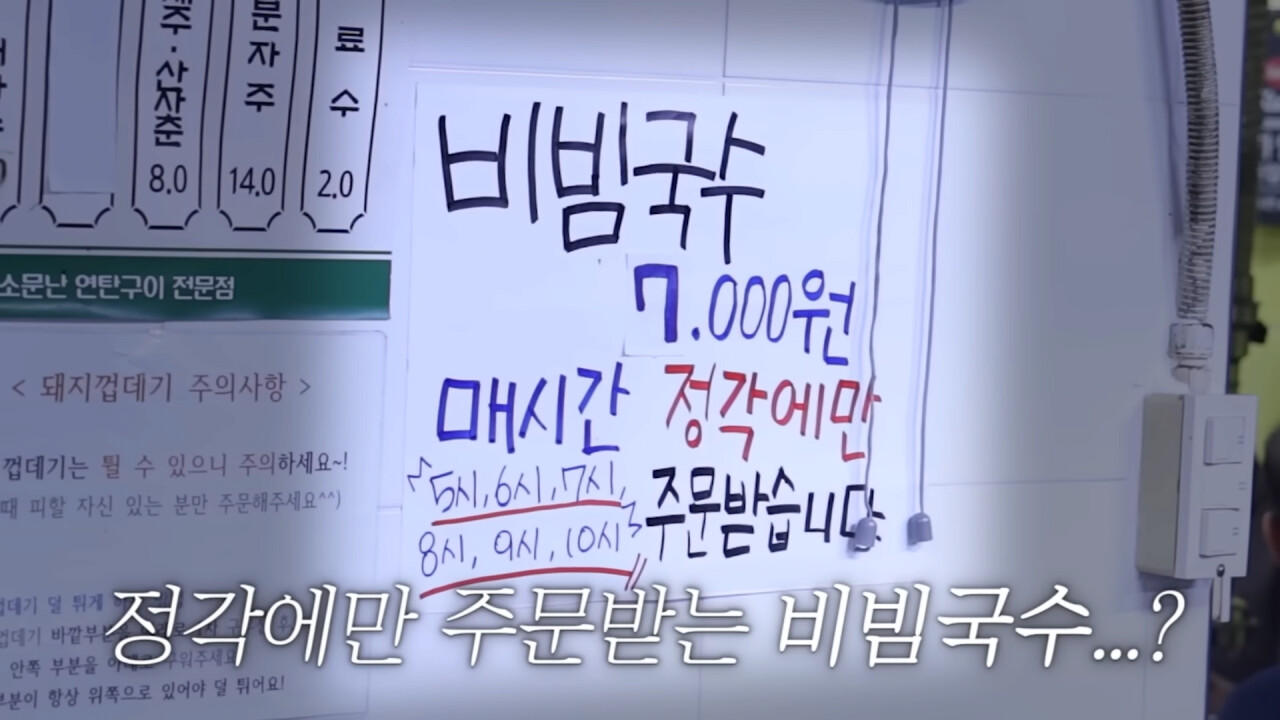 산사춘
8.0
문자주
14.0
료수
2.0
소문난 연탄구이 전문점
< 돼지껍데기 주의사항 >
껍데기는 튈 수 있으니 주의하세요~!
때 피할 자신 있는 분만 주문해주세요^^)
덜 튀게
바깥부분
안쪽 부분을
항상 위쪽으로 있어야 덜 튀어요!
비빔국수
7.000원
매시간 정각에만
5시, 6시, 7시,
8시, 9시, 10시
주문받습니다
정각에만 주문받는 비빔국수...?